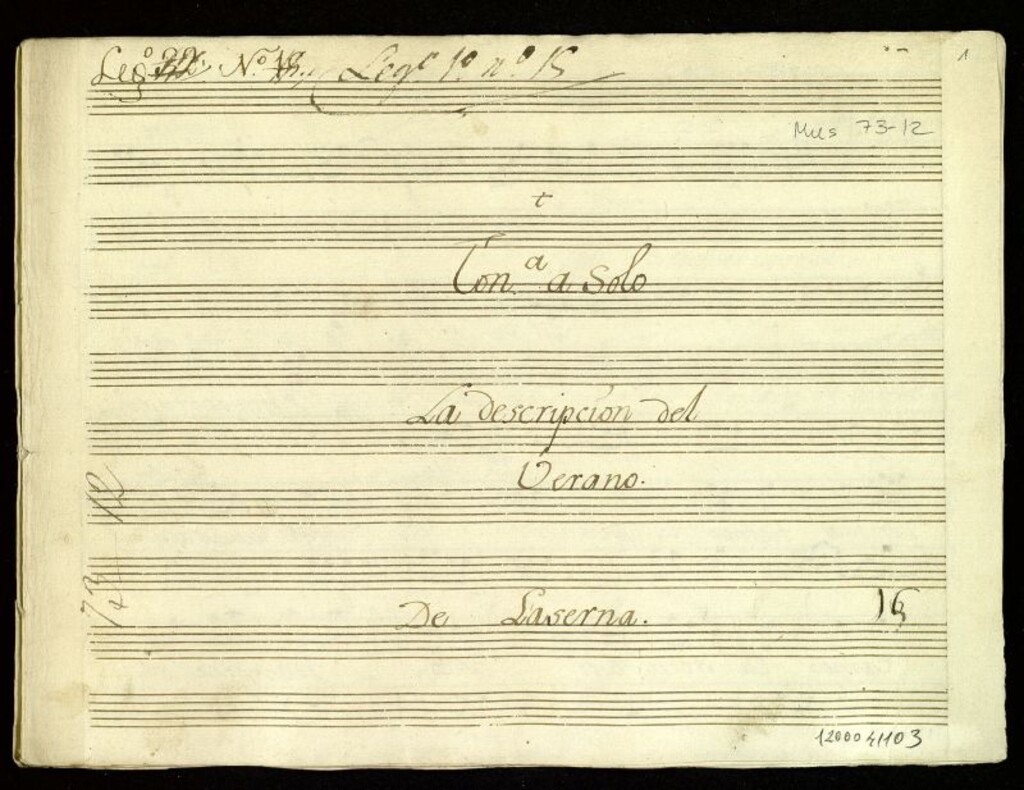 Legº 22. Nº 18. Legº 1º nº 15
1
Mus 73-12
t
Ton.ª a Solo
La descripcion del
Verano.
73-12
De Laserna.
16
1200041103